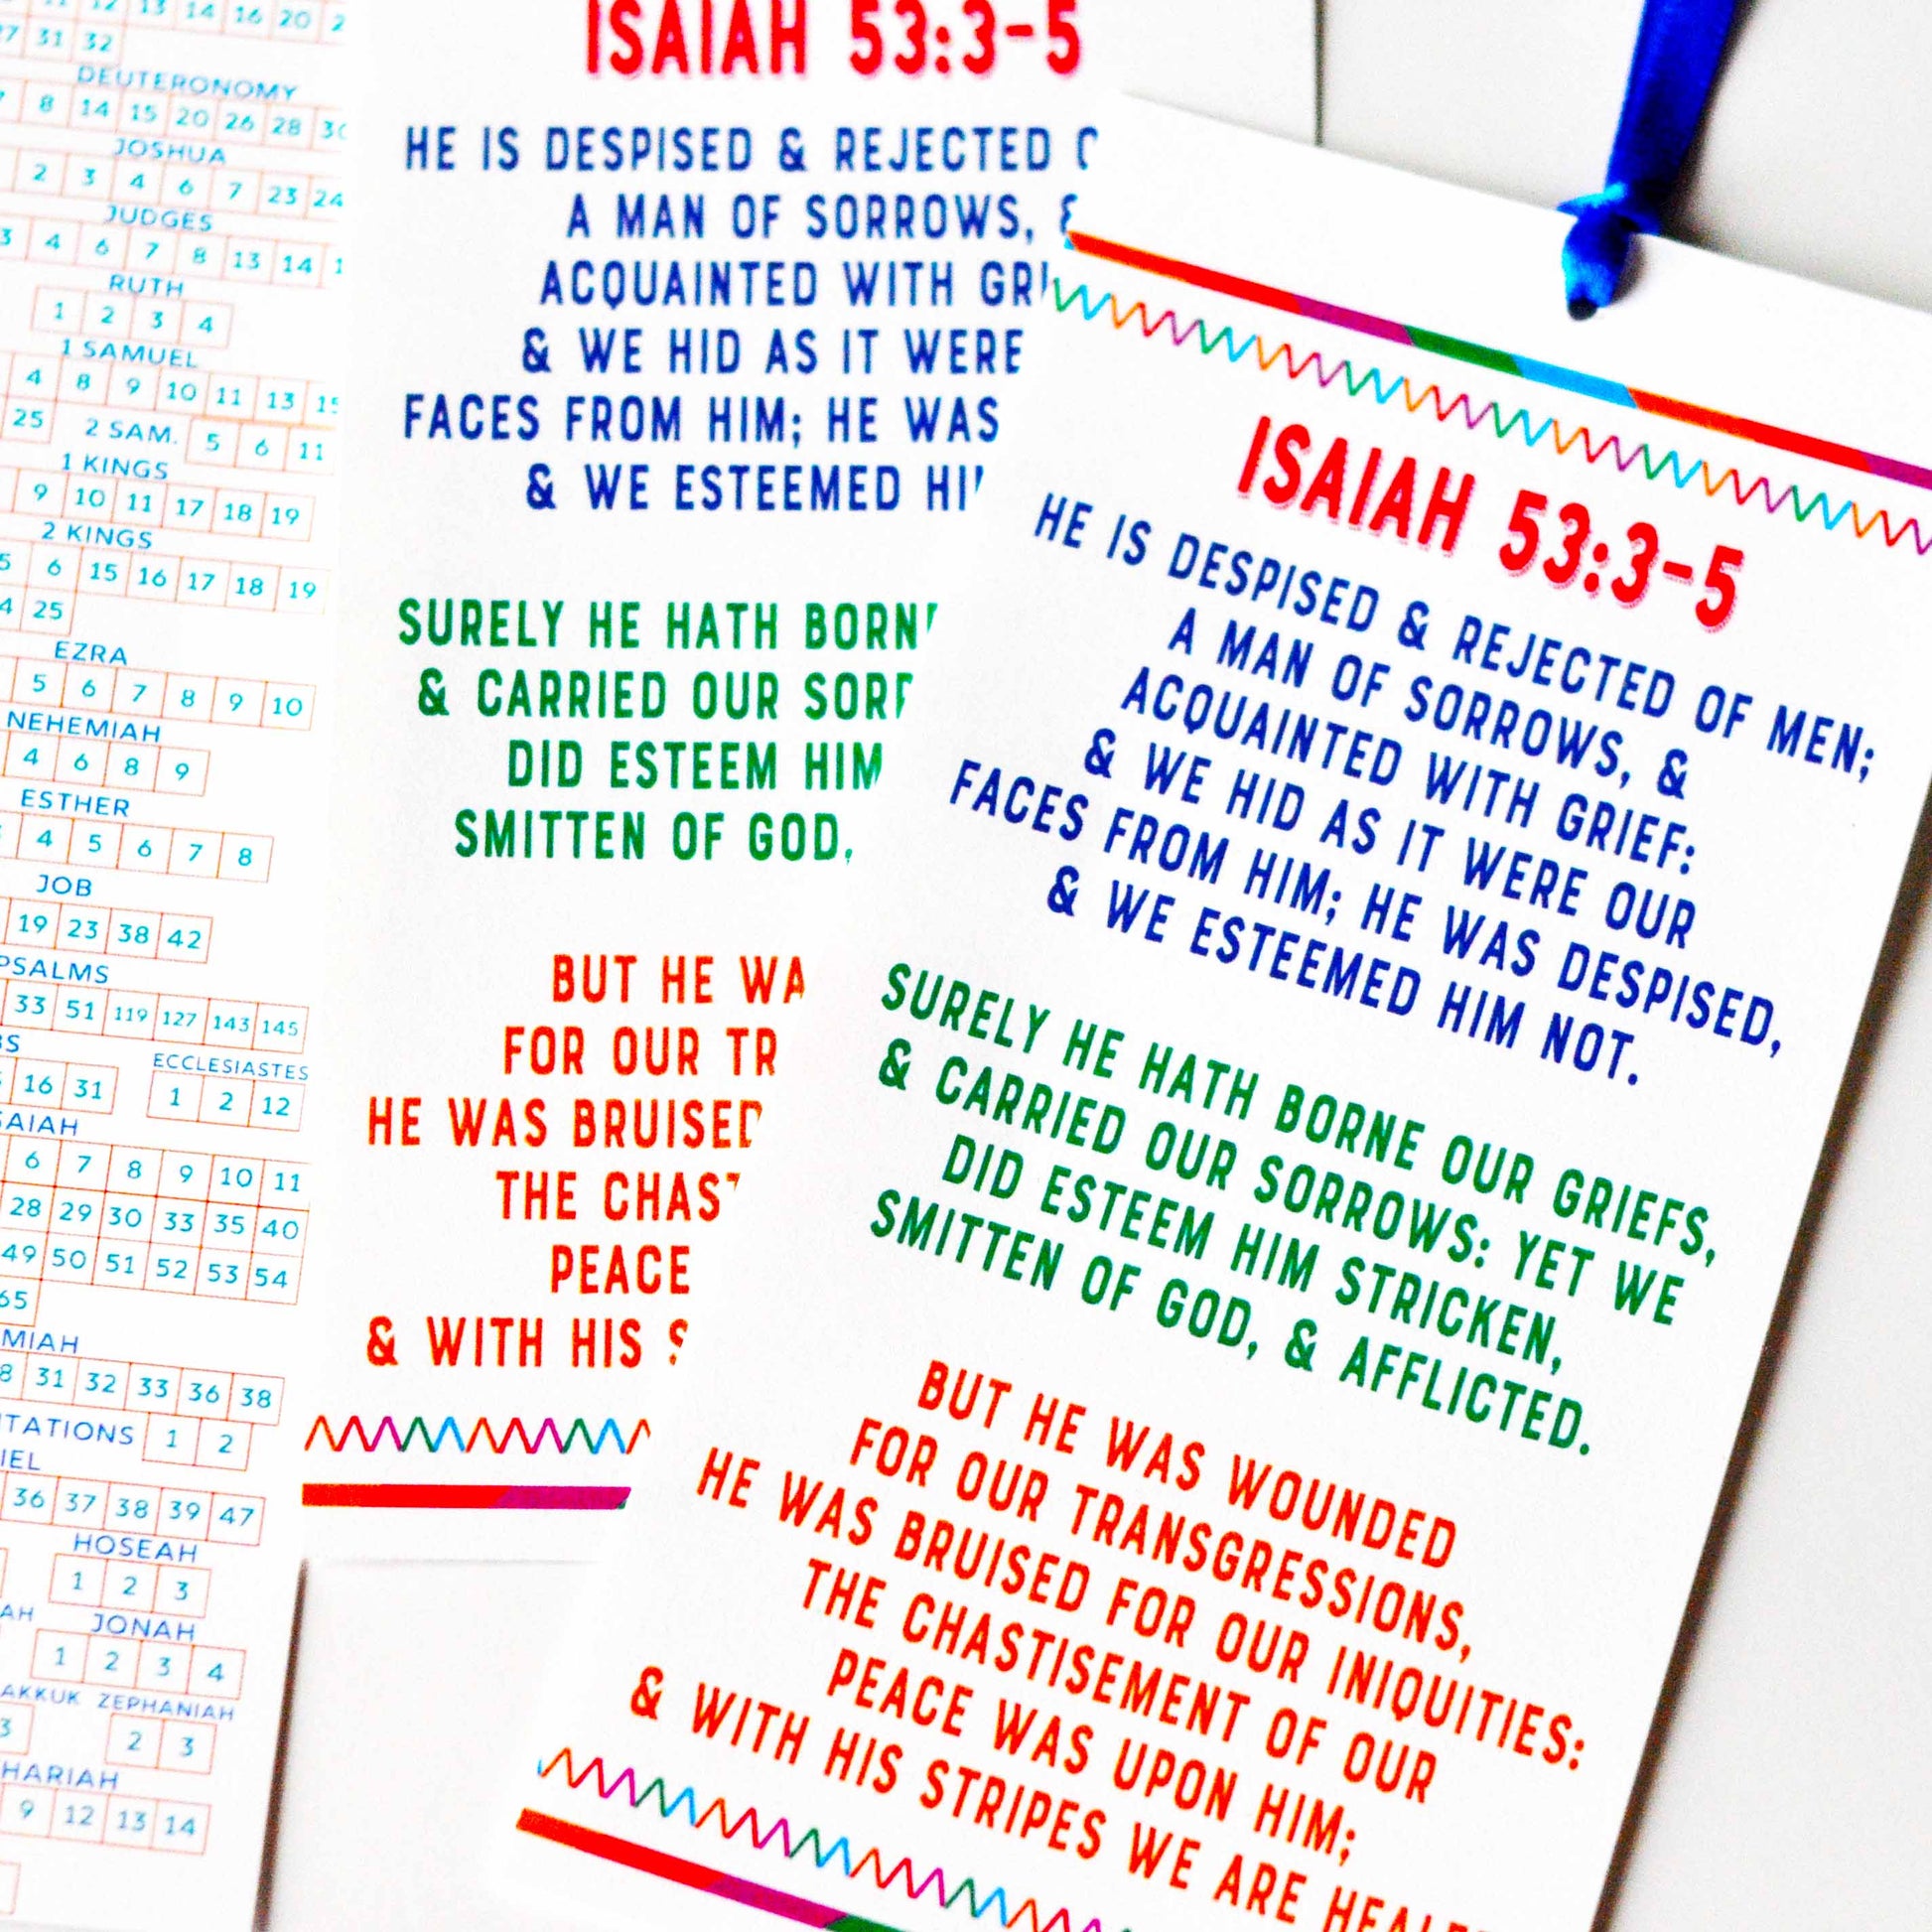 12 13 14 16 20
31 32
DEUTERONOMY
8 14 15 20 26 28
JOSHUA
2 3 4 6 7 23 24
JUDGES
3 4 6 7 8 13 14
RUTH
1 2 3 4
1 SAMUEL
4 8 9 10 11 13
25 2 SAM. 5 6 11
1 KINGS
9 10 11 17 18 19
2 KINGS
6 15 16 17 18 19
25
EZRA
5 6 7 8 9 10
NEHEMIAH
4 6 8 9
ESTHER
4 5 6 7 8
JOB
19 23 38 42
PSALMS
33 51 119 127 143 145
ECCLESIASTES
16 31 1 2 12
6 7 8 9 10 11
28 29 30 33 35 40
49 50 51 52 53 54
65
31 32 33 36 38
1 2
36 37 38 39 47
HOSEAH
1 2 3
JONAH
1 2 3 4
ZEPHANIAH
3 2 3
9 12 13 14
ISAIAH 53:3-5
HE IS DESPISED & REJECTED
A MAN OF SORROWS,
ACQUAINTED WITH
& WE HID AS IT WERE
FACES FROM HIM; HE WAS
& WE ESTEEMED
SURELY HE HATH
& CARRIED OUR
DID ESTEEM HIM
SMITTEN OF GOD,
BUT HE
FOR OUR
HE WAS BRUISED
THE
PEACE
& WITH HIS
ISAIAH 53:3-5
HE IS DESPISED & REJECTED OF MEN;
A MAN OF SORROWS, &
ACQUAINTED WITH GRIEF:
& WE HID AS IT WERE OUR
FACES FROM HIM; HE WAS DESPISED,
& WE ESTEEMED HIM NOT.
SURELY HE HATH BORNE OUR GRIEFS,
& CARRIED OUR SORROWS: YET WE
DID ESTEEM HIM STRICKEN,
SMITTEN OF GOD, & AFFLICTED.
BUT HE WAS WOUNDED
FOR OUR TRANSGRESSIONS,
HE WAS BRUISED FOR OUR INIQUITIES:
THE CHASTISEMENT OF OUR
PEACE WAS UPON HIM;
& WITH HIS STRIPES WE ARE